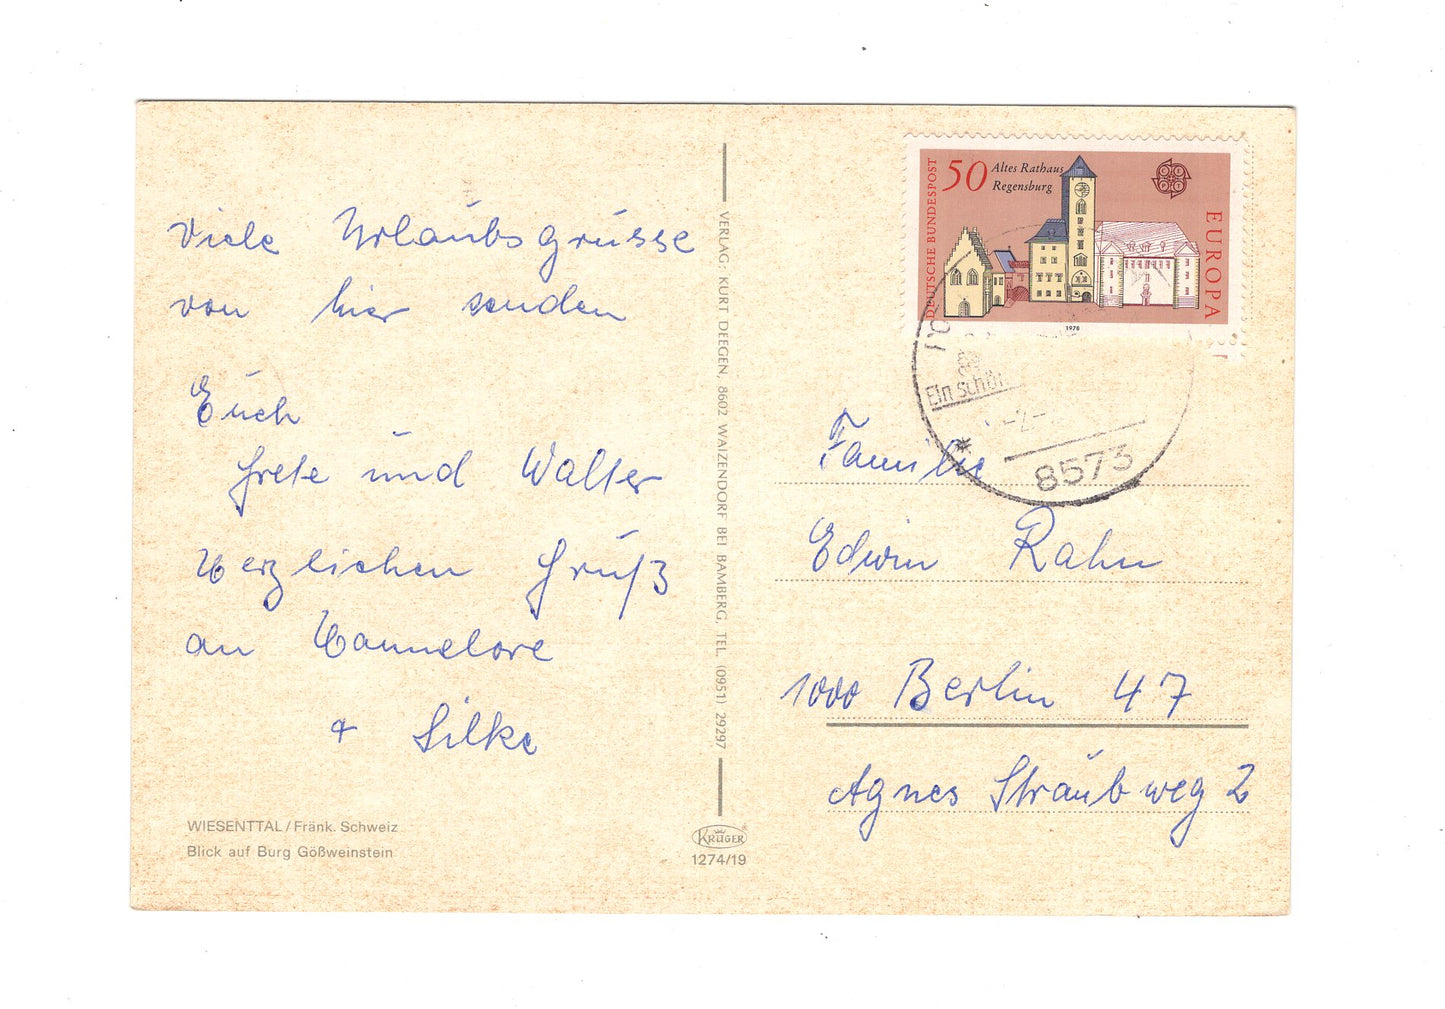 Viele Urlaubsgrüsse
von hier senden
Euch
Grete und Walter
Herzlichen Gruß
an Hannelore
+ Silke
WIESENTTAL/Fränk. Schweiz
Blick auf Burg Gößweinstein
VERLAG: KURT DEEGEN, 8602 WAIZENDORF BEI BAMBERG, TEL. (0951) 29297
KRÜGER
1274/19
DEUTSCHE BUNDESPOST
50 Altes Rathaus
Regensburg
EUROPA
1978
Ein schö
8573
Familie
Edwin Rahn
1000 Berlin 47
Agnes Straub weg 2